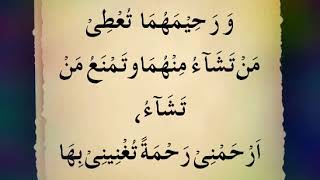 وَ رَحِيْمَهُمَا تُعْطِىْ
مَنْ تَشَآءُ مِنْهُمَا وَ تَمْنَعُ مَنْ
تَشَآءُ،
اَرْحَمْنِىْ رَحْمَةً تُغْنِيْنِىْ بِهَا